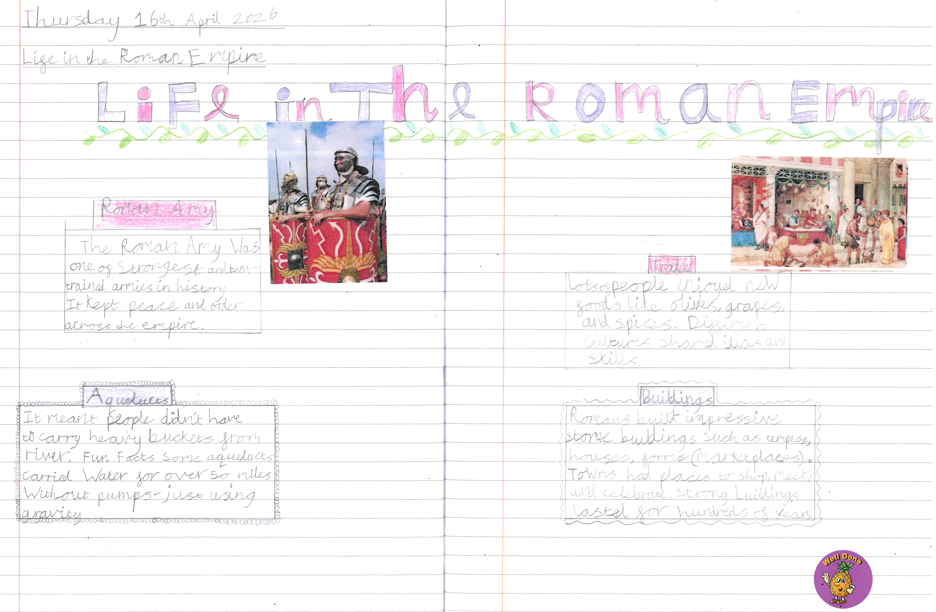 Thursday 16th April 2026
Life in the Roman Empire
Life in The Roman Empire
Roman Amy
The Roman Amy Was
one of strongest and best-
trained armies in history.
It Kept peace and order
across the empire.
Trade
Lots of people enjoyed new
goods like olives, grapes,
and spices. Different
cultures shared ideas and
skills.
Aqueducts
It meant people didn't have
to carry heavy buckets from
river. Fun Facts Some aqueducts
carried Water for over 50 miles
Without pumps-just using
gravity
Buildings
Romans built impressive
stone buildings such as
houses, (Marketplaces).
Towns had places to shop, meet
and celebrate. strong buildings
lasted for hundreds of years
Well Done